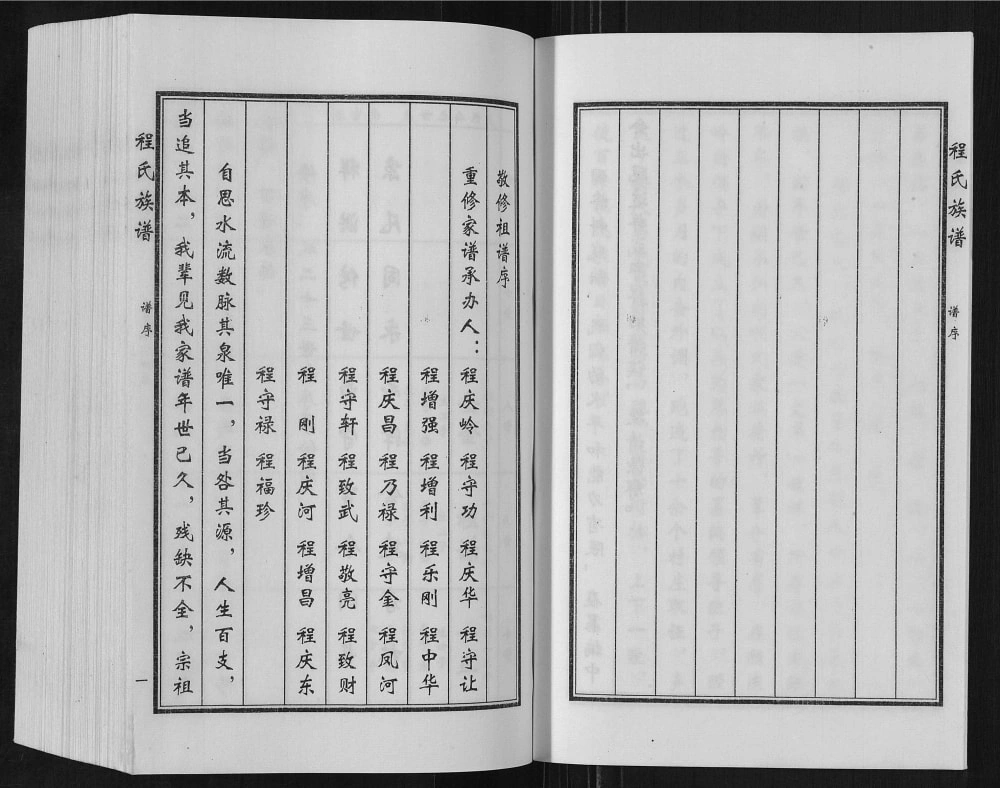 程氏族谱
谱序
敬修祖谱序
重修家谱承办人：程庆岭 程守功 程庆华 程守让
程增强 程增利 程乐刚 程中华
程庆昌 程乃禄 程守金 程凤河
程守轩 程致武 程敬亮 程致财
程 刚 程庆河 程增昌 程庆东
程守禄 程福珍
自思水流数脉其泉唯一，当咎其源，人生百支，
当追其本，我辈见我家谱年世已久，残缺不全，宗祖
程氏族谱
谱序
一